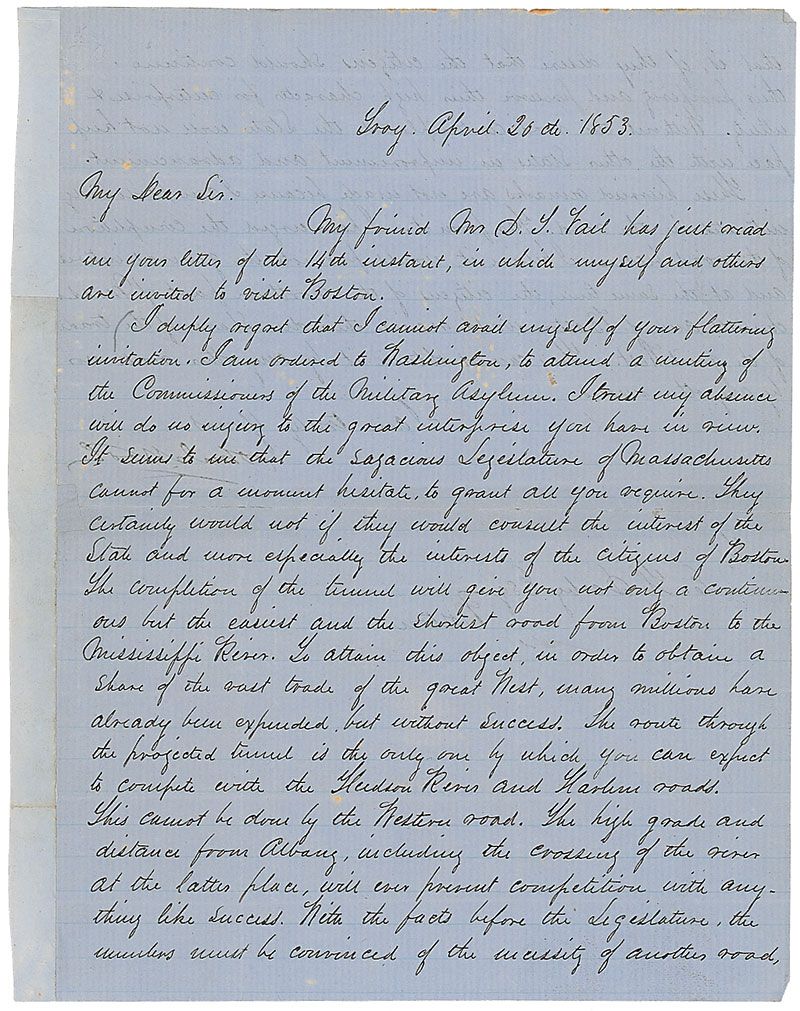 Troy. April. 20th. 1853.
My Dear Sir.
My friend Mr D. T. Vail has just read
me your letter of the 14th instant, in which myself and others
are invited to visit Boston.
I deeply regret that I cannot avail myself of your flattering
invitation. I am ordered to Washington, to attend a meeting of
the Commissioners of the Military Asylum. I trust my absence
will do no injury to the great interprise you have in view.
It seems to me that the sagacious Legislature of Massachusetts
cannot for a moment hesitate, to grant all you require. They
certainly would not if they would consult the interest of the
State and more especially the interests of the citizens of Boston.
The completion of the tunnel will give you not only a continu-
ous but the easiest and the shortest road from Boston to the
Mississippi River. To attain this object, in order to obtain a
share of the vast trade of the great West, many millions have
already been expended, but without success. The route through
the projected tunnel is the only one by which you can expect
to compete with the Hudson River and Harlem roads.
This cannot be done by the Western road. The high grade and
distance from Albany, including the crossing of the river
at the latter place, will ever prevent competition with any-
thing like success. With the facts before the Legislature, the
members must be convinced of the necessity of another road,